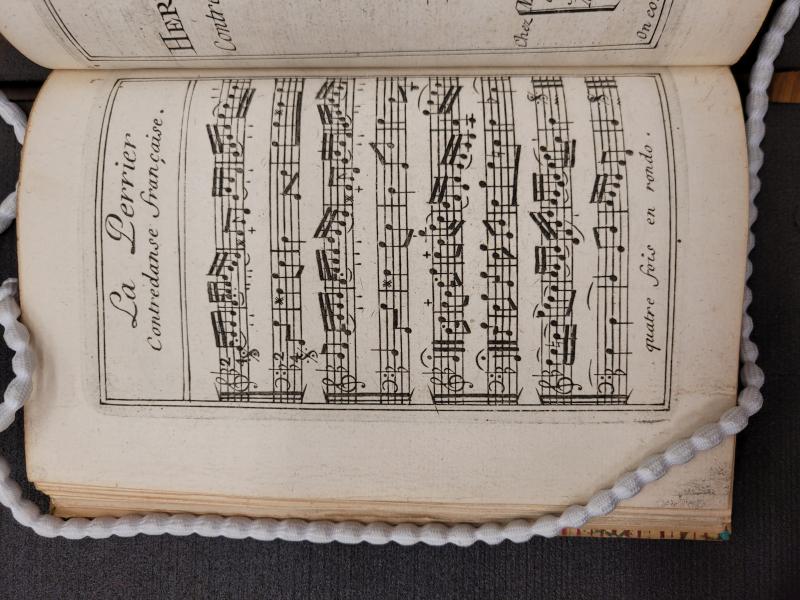 HER
Contre
Chez
On co
La Perrier
Contredanse française.
2
4
2
4
quatre fois en rondo.